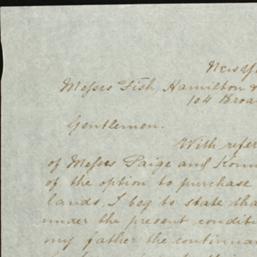 Messrs Fish, Hamilton &
104 Broa
Gentlemen.
With refer
of Messrs Paige and
of the option to purchase
lands, I beg to state tha
under the present conditi
my father the continuan